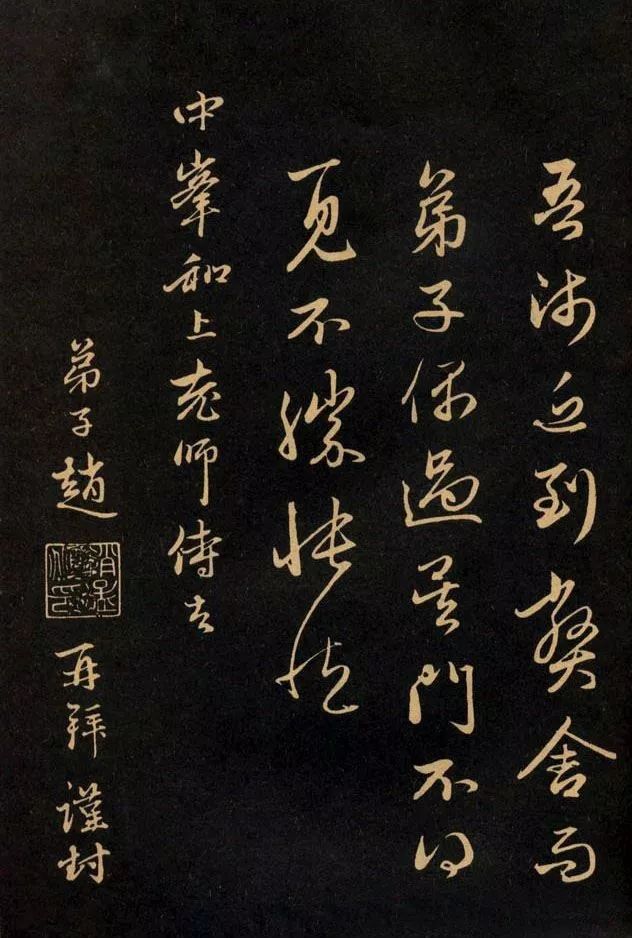 吾師到弊舍而
弟子偶過吴門不得
一見不勝悵
中峯和上老師侍者
弟子趙再拜謹封